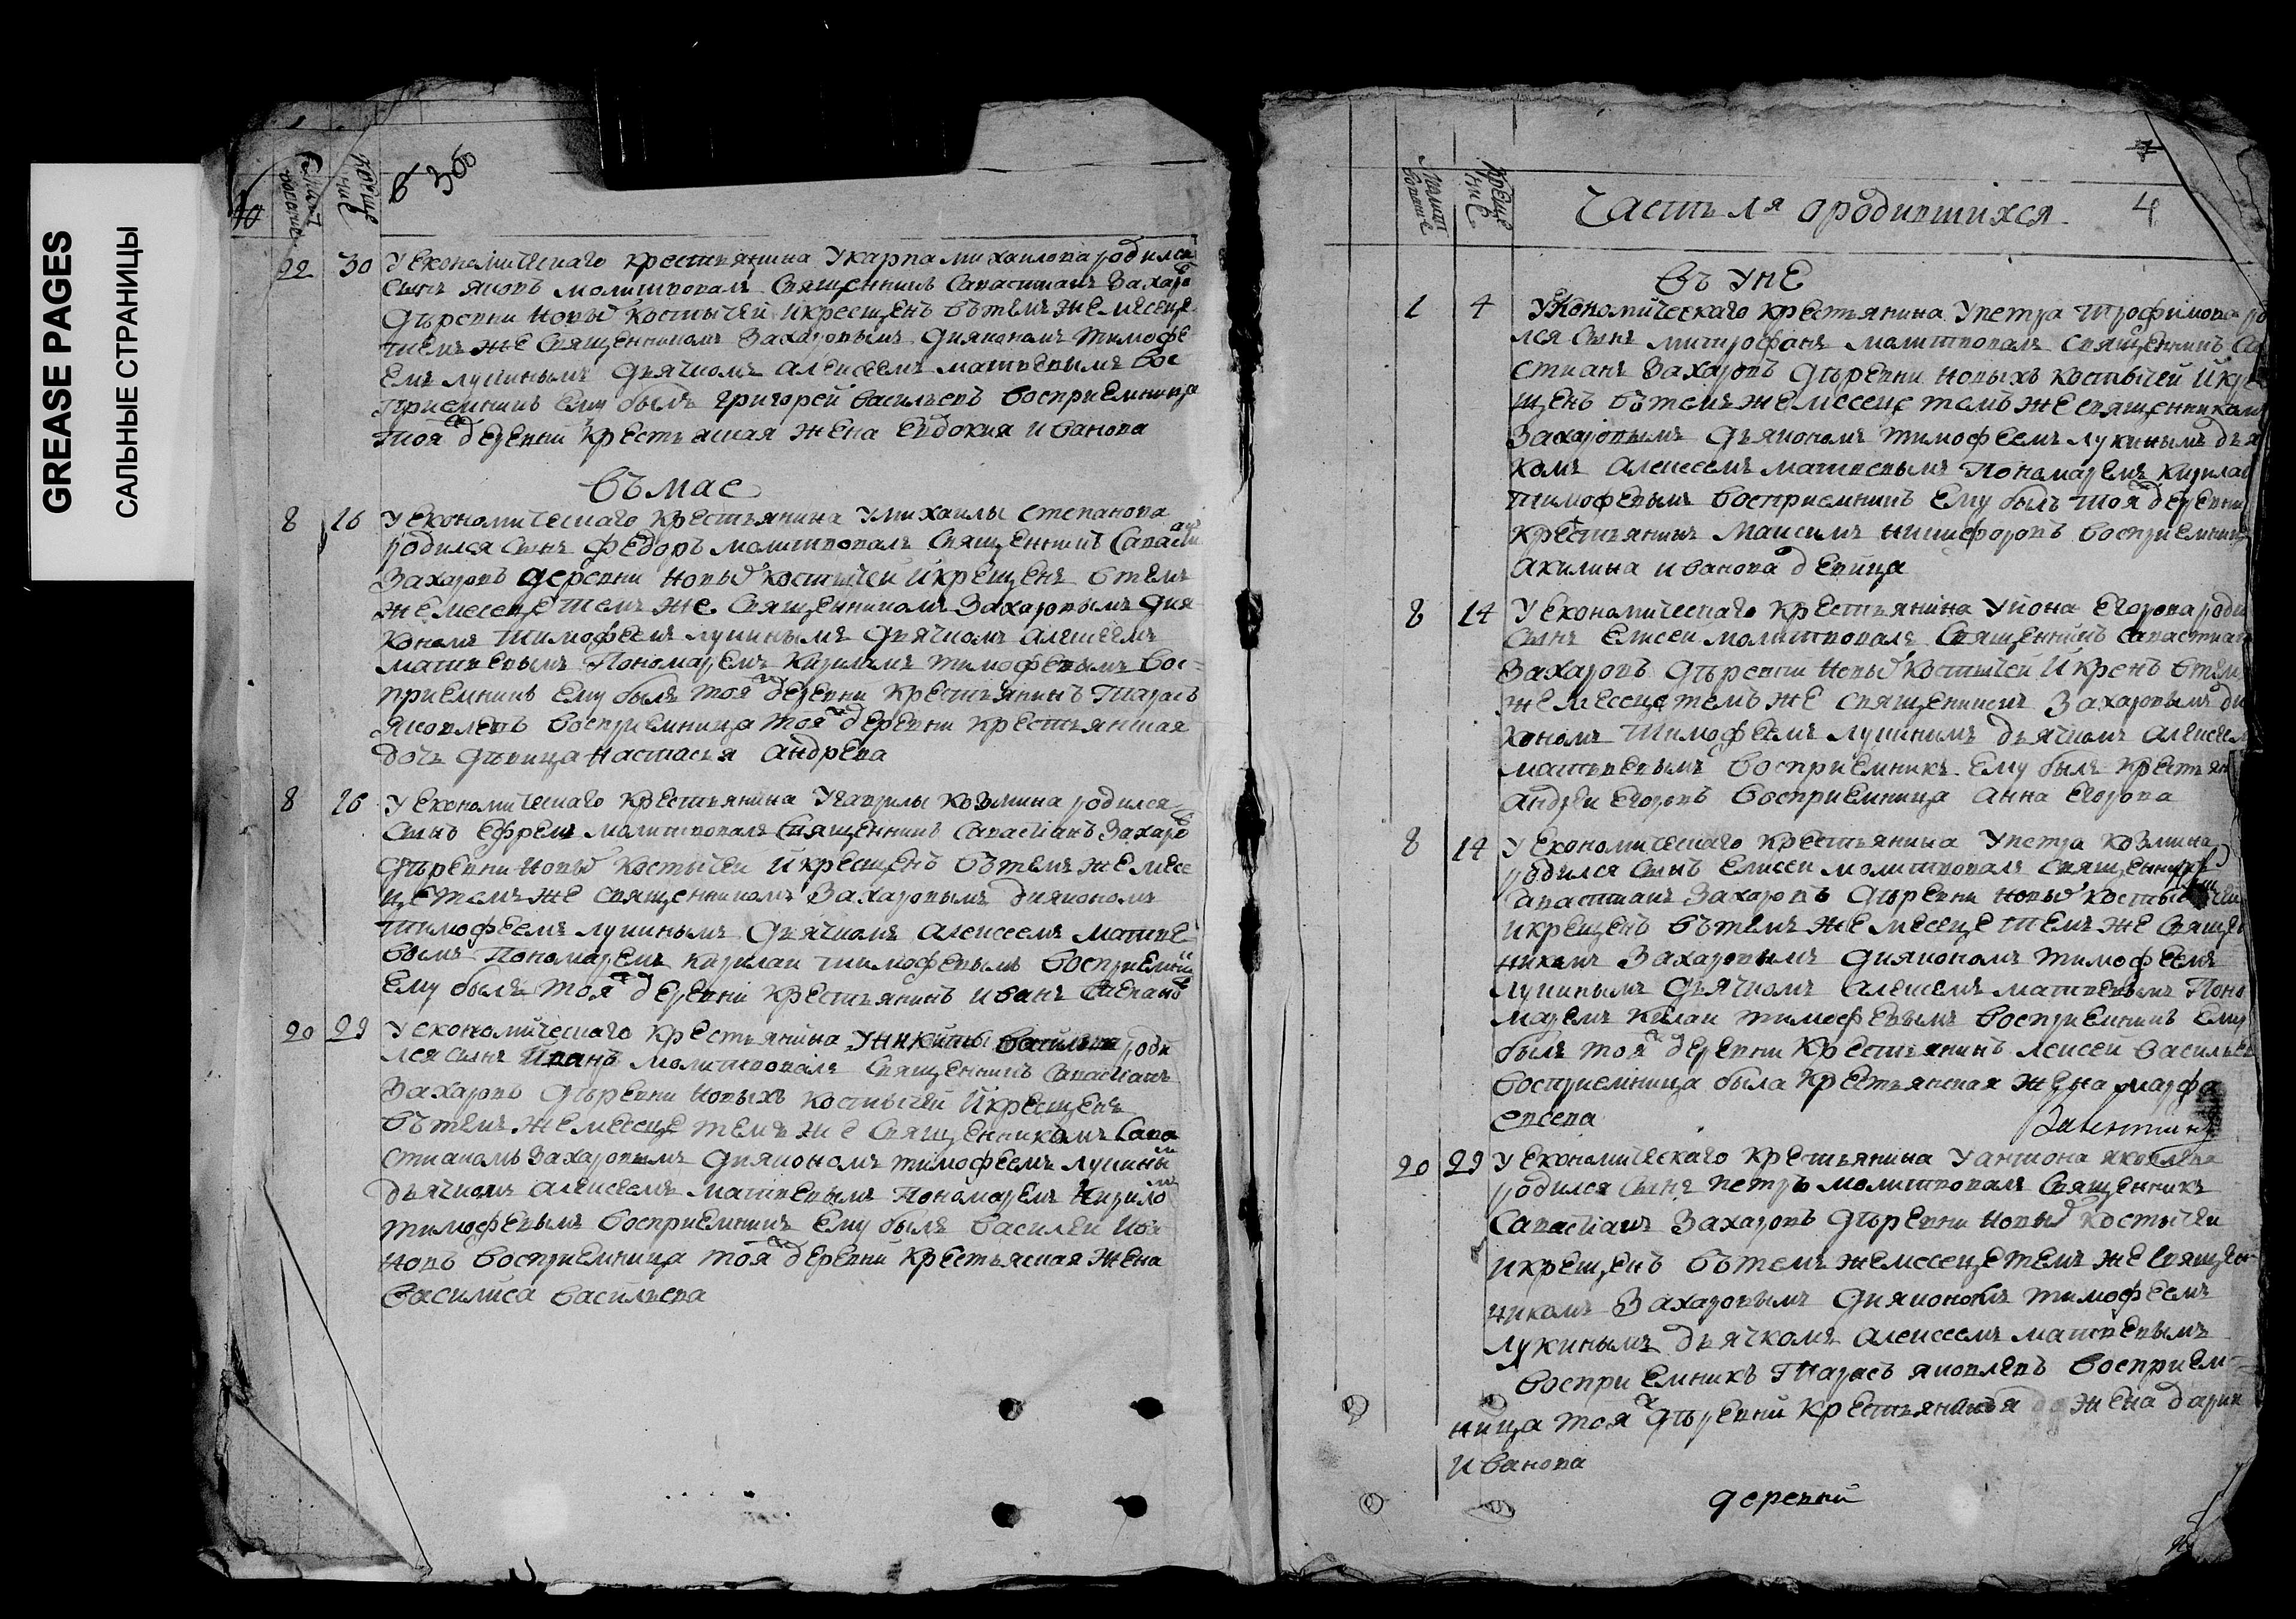 GREASE PAGES
САЛЬНЫЕ СТРАНИЦЫ
10
креще
ние
22 30 У Економическаго крестьянина У карпа михаилова родился
сынъ яковъ молитвовалъ священникъ Савастианъ Захаро
дѣревни новых костычей и крещенъ вътемъ же месеце
темъ же священникомъ Захаровымъ дияконом тимофе
емъ лукинымъ дьячкомъ алексеемъ матвевымъ вос
приемникъ ему былъ григорей васильевъ восприемница
тоя деревни крестьяская жена евдокия иванова
въ мае
8 16 У Економическаго крестьянина У михаилы степанова
родился сынъ федоръ молитвовалъ священникъ Савасти
Захаровъ деревни новых костычей и крещенъ втемъ
же месеце темъ же священникомъ Захаровымъ дия
кономъ тимофеемъ лукинымъ дьячкомъ алексеемъ
матвевымъ пономаремъ кириломъ тимофевымъ вос=
приемникъ ему былъ тоя деревни крестьянинъ тарасъ
яковлевъ восприемница тоя деревни крестьянская
дочь дѣвица настасья андрева
8 16 У Економическаго крестьянина У гаврилы козмина родился
сынъ ефремъ молитвовалъ священникъ Савастианъ Захаро
дѣревни новых костычеи и крещенъ вътемъ же месе
це темъ же священникомъ Захаровымъ дияконом
тимофеемъ лукинымъ дьячкомъ алексеемъ матве
вымъ пономаремъ кирилаи тимофевымъ восприемни
ему былъ тоя деревни крестьянинъ иванъ степано
20 29 У економическаго крестьянина У никиты васильева роди
лся сынъ иванъ молитвовалъ священникъ Савастианъ
Захаровъ дѣревни новыхъ костычей и крещенъ
вътемъ же месеце темъ же священникомъ Сава
стианомъ Захаровымъ дияконом тимофеемъ лукины
дьячкомъ алексеемъ матвевымъ пономаремъ кирило
тимофевымъ восприемникъ ему былъ василеи ива
новъ восприемница тоя деревни крестьяская жена
василиса васильева
креще
ние
Часть 1я ородившихся 4
въ Уне
1 4 У Економическаго крестьянина У петра трофимова ро
лся сынъ митрофанъ молитвовалъ священникъ Са
стианъ Захаровъ дѣревни новыхъ костычей и кре
щенъ вътемъ же месеце темъ же священником
Захаровымъ дьякономъ тимофеемъ лукинымъ дья
комъ алексеемъ матвевымъ пономаремъ кирилаи
тимофевымъ восприемникъ ему былъ тоя деревни
крестьянинъ Максимъ никифоровъ восприемниц
акилина иванова девица
8 14 У Економическаго крестьянина У иона егорова роди
сынъ елисеи молитвовалъ священникъ Савастиан
Захаровъ дѣревни новых костычей и кренъ втем
же месеце темъ же священником Захаровымъ ди
кономъ тимофеемъ лукинымъ дьячкомъ алексеем
матвевымъ восприемникъ ему былъ крестьян
андреи егоровъ восприемница анна егорова
8 14 У Економическаго крестьянина У петра козмина
родился сынъ елисеи молитвовалъ священник
Савастианъ Захаровъ дѣревни новых костычеи
и крещенъ вътемъ же месеце темъ же священ
никомъ Захаровымъ дияконом тимофеемъ
лукинымъ дьячкомъ алексемъ матвевымъ поно
маремъ килаи тимофевымъ восприемникъ ему
былъ тоя деревни крестьянинъ леисеи васильев
восприемница была крестьянская жена марфа
евсева
20 29 У Економическаго крестьянина У антона яковлева
родился сынъ петръ молитвовалъ священникъ
Савастианъ Захаровъ дѣревни новых костычеи
и крещенъ вътемъ же месеце темъ же священ
никомъ Захаровымъ дияконом тимофеемъ
лукинымъ дьячкомъ алексеемъ матвевымъ
восприемникъ тарасъ яковлевъ восприем=
ница тоя дѣревни крестьянская жена дария
иванова
деревни